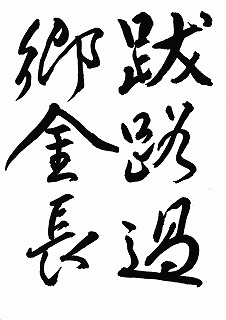 跋路過
鄉金長